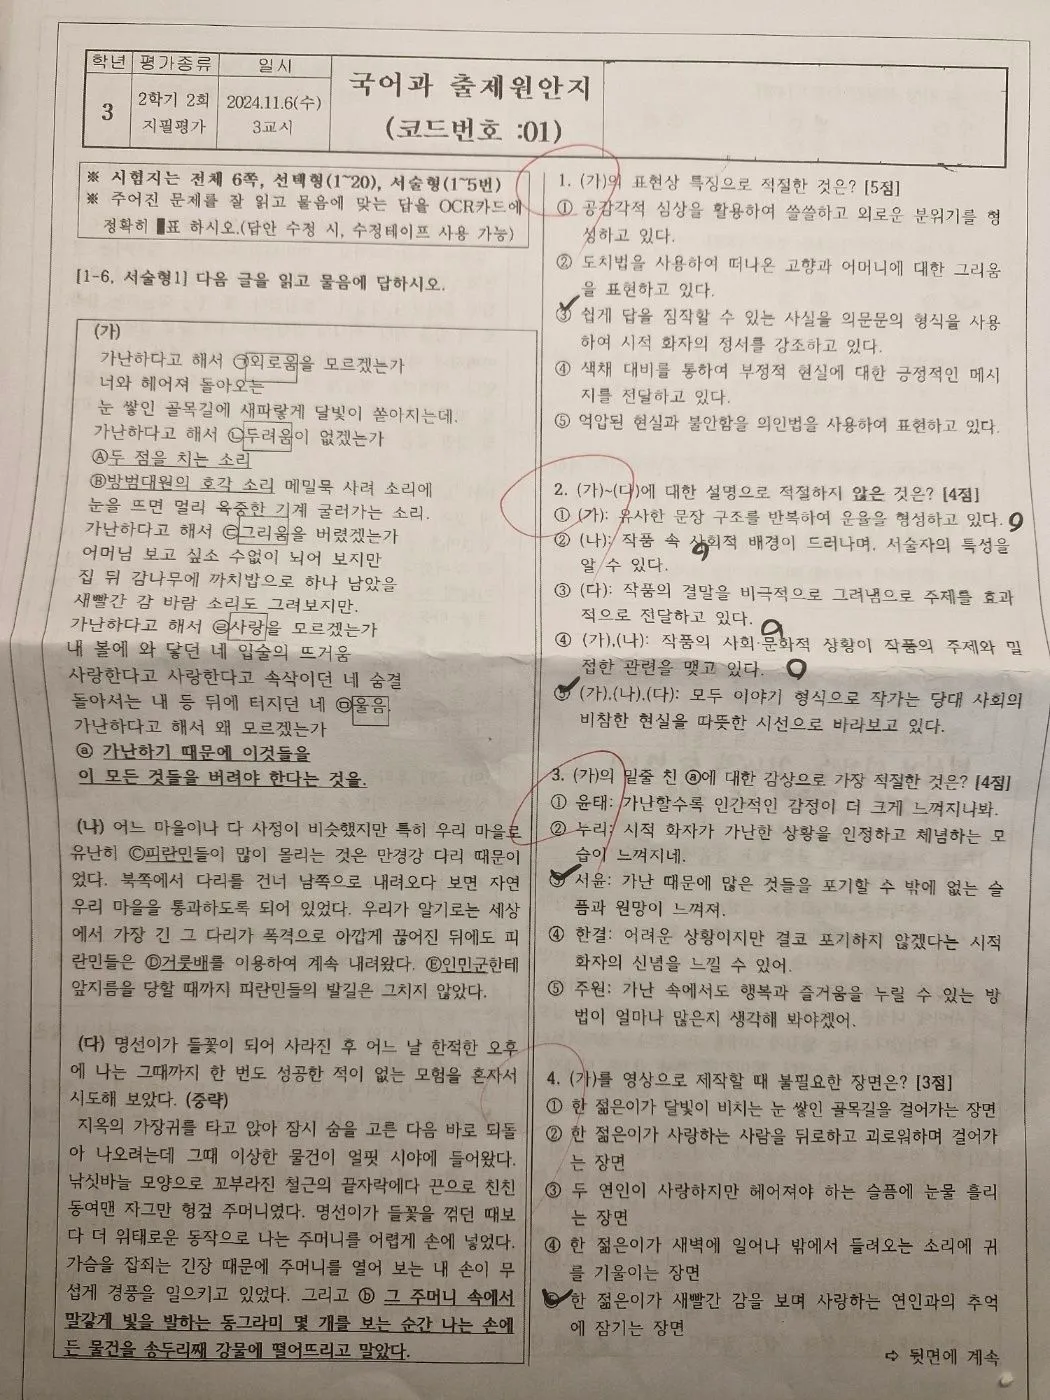 학년 평가종류 일시
3
2학기 2회
지필평가
2024.11.6(수)
3교시
국어과 출제원안지
(코드번호 :01)
※ 시험지는 전체 6쪽, 선택형(1~20), 서술형(1~5번)
※ 주어진 문제를 잘 읽고 물음에 맞는 답을 OCR카드에
정확히 ▮표 하시오.(답안 수정 시, 수정테이프 사용 가능)
[1-6, 서술형1] 다음 글을 읽고 물음에 답하시오.
(가)
가난하다고 해서 ㉠외로움을 모르겠는가
너와 헤어져 돌아오는
눈 쌓인 골목길에 새파랗게 달빛이 쏟아지는데.
가난하다고 해서 ㉡두려움이 없겠는가
Ⓐ두 점을 치는 소리
Ⓑ방범대원의 호각 소리 메밀묵 사려 소리에
눈을 뜨면 멀리 육중한 기계 굴러가는 소리.
가난하다고 해서 ㉢그리움을 버렸겠는가
어머님 보고 싶소 수없이 뇌어 보지만
집 뒤 감나무에 까치밥으로 하나 남았을
새빨간 감 바람 소리도 그려보지만.
가난하다고 해서 ㉣사랑을 모르겠는가
내 볼에 와 닿던 네 입술의 뜨거움
사랑한다고 사랑한다고 속삭이던 네 숨결
돌아서는 내 등 뒤에 터지던 네 ㉤울음.
가난하다고 해서 왜 모르겠는가
ⓐ 가난하기 때문에 이것들을
이 모든 것들을 버려야 한다는 것을.
(나) 어느 마을이나 다 사정이 비슷했지만 특히 우리 마을로
유난히 Ⓒ피란민들이 많이 몰리는 것은 만경강 다리 때문이
었다. 북쪽에서 다리를 건너 남쪽으로 내려오다 보면 자연
우리 마을을 통과하도록 되어 있었다. 우리가 알기로는 세상
에서 가장 긴 그 다리가 폭격으로 아깝게 끊어진 뒤에도 피
란민들은 Ⓓ거룻배를 이용하여 계속 내려왔다. Ⓔ인민군한테
앞지름을 당할 때까지 피란민들의 발길은 그치지 않았다.
(다) 명선이가 들꽃이 되어 사라진 후 어느 날 한적한 오후
에 나는 그때까지 한 번도 성공한 적이 없는 모험을 혼자서
시도해 보았다. (중략)
지옥의 가장귀를 타고 앉아 잠시 숨을 고른 다음 바로 되돌
아 나오려는데 그때 이상한 물건이 얼핏 시야에 들어왔다.
낚싯바늘 모양으로 꼬부라진 철근의 끝자락에다 끈으로 친친
동여맨 자그만 헝겊 주머니였다. 명선이가 들꽃을 꺾던 때보
다 더 위태로운 동작으로 나는 주머니를 어렵게 손에 넣었다.
가슴을 잡죄는 긴장 때문에 주머니를 열어 보는 내 손이 무
섭게 경풍을 일으키고 있었다. 그리고 ⓑ 그 주머니 속에서
말갛게 빛을 발하는 동그라미 몇 개를 보는 순간 나는 손에
든 물건을 송두리째 강물에 떨어뜨리고 말았다.
1. (가)의 표현상 특징으로 적절한 것은? [5점]
① 공감각적 심상을 활용하여 쓸쓸하고 외로운 분위기를 형
성하고 있다.
② 도치법을 사용하여 떠나온 고향과 어머니에 대한 그리움
을 표현하고 있다.
③ 쉽게 답을 짐작할 수 있는 사실을 의문문의 형식을 사용
하여 시적 화자의 정서를 강조하고 있다.
④ 색채 대비를 통하여 부정적 현실에 대한 긍정적인 메시
지를 전달하고 있다.
⑤ 억압된 현실과 불안함을 의인법을 사용하여 표현하고 있다.
2. (가)~(다)에 대한 설명으로 적절하지 않은 것은? [4점]
① (가): 유사한 문장 구조를 반복하여 운율을 형성하고 있다.
② (나): 작품 속 사회적 배경이 드러나며, 서술자의 특성을
알 수 있다.
③ (다): 작품의 결말을 비극적으로 그려냄으로 주제를 효과
적으로 전달하고 있다.
④ (가),(나): 작품의 사회·문화적 상황이 작품의 주제와 밀
접한 관련을 맺고 있다.
⑤ (가),(나),(다): 모두 이야기 형식으로 작가는 당대 사회의
비참한 현실을 따뜻한 시선으로 바라보고 있다.
3. (가)의 밑줄 친 ⓐ에 대한 감상으로 가장 적절한 것은? [4점]
① 윤태: 가난할수록 인간적인 감정이 더 크게 느껴지나봐.
② 누리: 시적 화자가 가난한 상황을 인정하고 체념하는 모
습이 느껴지네.
③ 서윤: 가난 때문에 많은 것들을 포기할 수 밖에 없는 슬
픔과 원망이 느껴져.
④ 한결: 어려운 상황이지만 결코 포기하지 않겠다는 시적
화자의 신념을 느낄 수 있어.
⑤ 주원: 가난 속에서도 행복과 즐거움을 누릴 수 있는 방
법이 얼마나 많은지 생각해 봐야겠어.
4. (가)를 영상으로 제작할 때 불필요한 장면은? [3점]
① 한 젊은이가 달빛이 비치는 눈 쌓인 골목길을 걸어가는 장면
② 한 젊은이가 사랑하는 사람을 뒤로하고 괴로워하며 걸어가
는 장면
③ 두 연인이 사랑하지만 헤어져야 하는 슬픔에 눈물 흘리
는 장면
④ 한 젊은이가 새벽에 일어나 밖에서 들려오는 소리에 귀
를 기울이는 장면
⑤ 한 젊은이가 새빨간 감을 보며 사랑하는 연인과의 추억
에 잠기는 장면
⇨ 뒷면에 계속